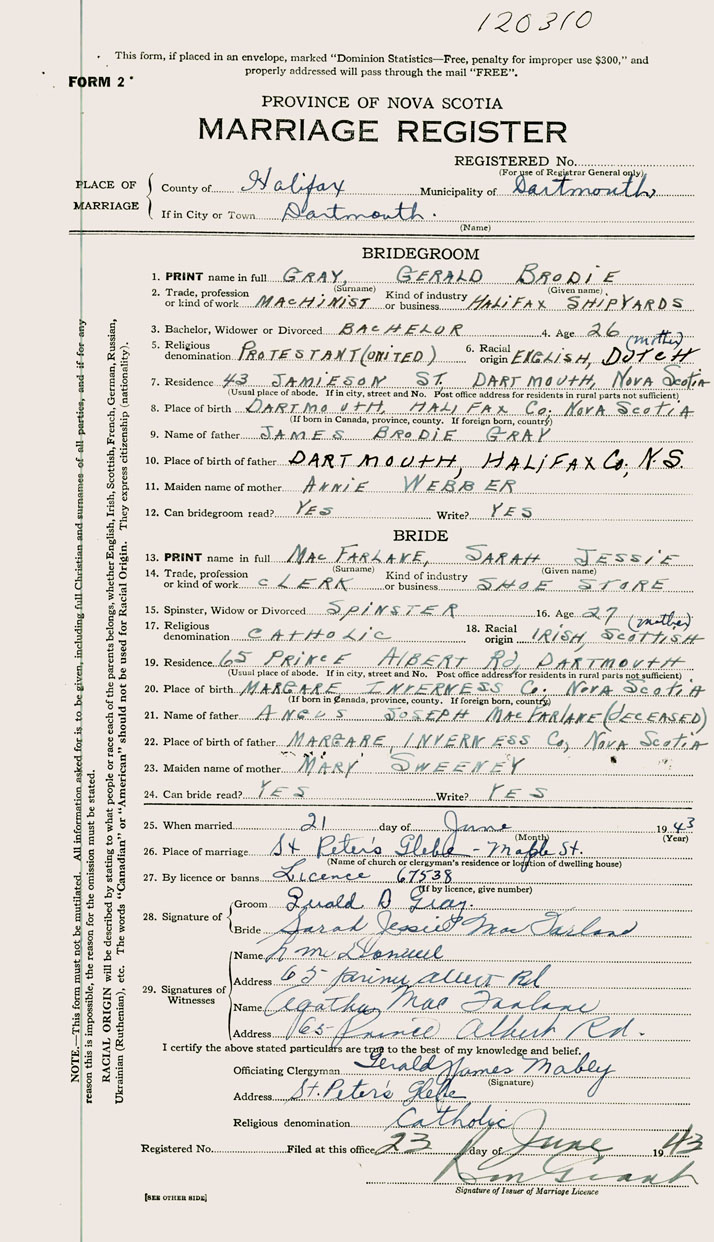 120310
This form, if placed in an envelope, marked "Dominion Statistics—Free, penalty for improper use $300," and
properly addressed will pass through the mail "FREE".
FORM 2
PROVINCE OF NOVA SCOTIA
MARRIAGE REGISTER
REGISTERED No.
(For use of Registrar General only)
PLACE OF MARRIAGE
County of Halifax Municipality of Dartmouth
If in City or Town Dartmouth.
(Name)
BRIDEGROOM
1. PRINT name in full GRAY, GERALD BRODIE
(Surname) (Given name)
2. Trade, profession or kind of work MACHINIST Kind of industry or business HALIFAX SHIPYARDS
3. Bachelor, Widower or Divorced BACHELOR 4. Age 26
(mother)
5. Religious denomination PROTESTANT (UNITED) 6. Racial origin ENGLISH, DUTCH
7. Residence 43 JAMIESON ST. DARTMOUTH, NOVA SCOTIA
(Usual place of abode. If in city, street and No. Post office address for residents in rural parts not sufficient)
8. Place of birth DARTMOUTH, HALIFAX Co; NOVA SCOTIA
(If born in Canada, province, county. If foreign born, country)
9. Name of father JAMES BRODIE GRAY
10. Place of birth of father DARTMOUTH, HALIFAX Co; N.S.
11. Maiden name of mother ANNIE WEBBER
12. Can bridegroom read? YES Write? YES
BRIDE
13. PRINT name in full MACFARLANE, SARAH JESSIE
(Surname) (Given name)
14. Trade, profession or kind of work CLERK Kind of industry or business SHOE STORE
15. Spinster, Widow or Divorced SPINSTER 16. Age 27
(mother)
17. Religious denomination CATHOLIC 18. Racial origin IRISH, SCOTTISH
19. Residence 65 PRINCE ALBERT Rd, DARTMOUTH
(Usual place of abode. If in city, street and No. Post office address for residents in rural parts not sufficient)
20. Place of birth MARGARE, INVERNESS Co. NOVA SCOTIA
(If born in Canada, province, county. If foreign born, country)
21. Name of father ANGUS JOSEPH MACFARLANE (DECEASED)
22. Place of birth of father MARGARE, INVERNESS Co, NOVA SCOTIA
23. Maiden name of mother MARY SWEENEY
24. Can bride read? YES Write? YES
25. When married 21 day of June 1943
(Month) (Year)
26. Place of marriage St Peter's Glebe - Maple St.
(Name of church or clergyman's residence or location of dwelling house)
27. By licence or banns Licence 67538
(If by licence, give number)
28. Signature of
Groom Gerald B Gray.
Bride Sarah Jessie MacFarlane
29. Signatures of Witnesses
Name
Address 65 Prince Albert Rd
Name Agatha MacFarlane
Address 65 Prince Albert Rd.
I certify the above stated particulars are true to the best of my knowledge and belief.
Officiating Clergyman Gerald James Mabley
(Signature)
Address St. Peter's Glebe
Religious denomination Catholic
Registered No. Filed at this office 23 day of June 1943
Signature of Issuer of Marriage Licence
[SEE OTHER SIDE]
NOTE.—This form must not be mutilated. All information asked for is to be given, including full Christian and surnames of all parties, and if for any
reason this is impossible, the reason for the omission must be stated.
RACIAL ORIGIN will be described by stating to what people or race each of the parents belongs, whether English, Irish, Scottish, French, German, Russian,
Ukrainian (Ruthenian), etc. The words "Canadian" or "American" should not be used for Racial Origin. They express citizenship (nationality).